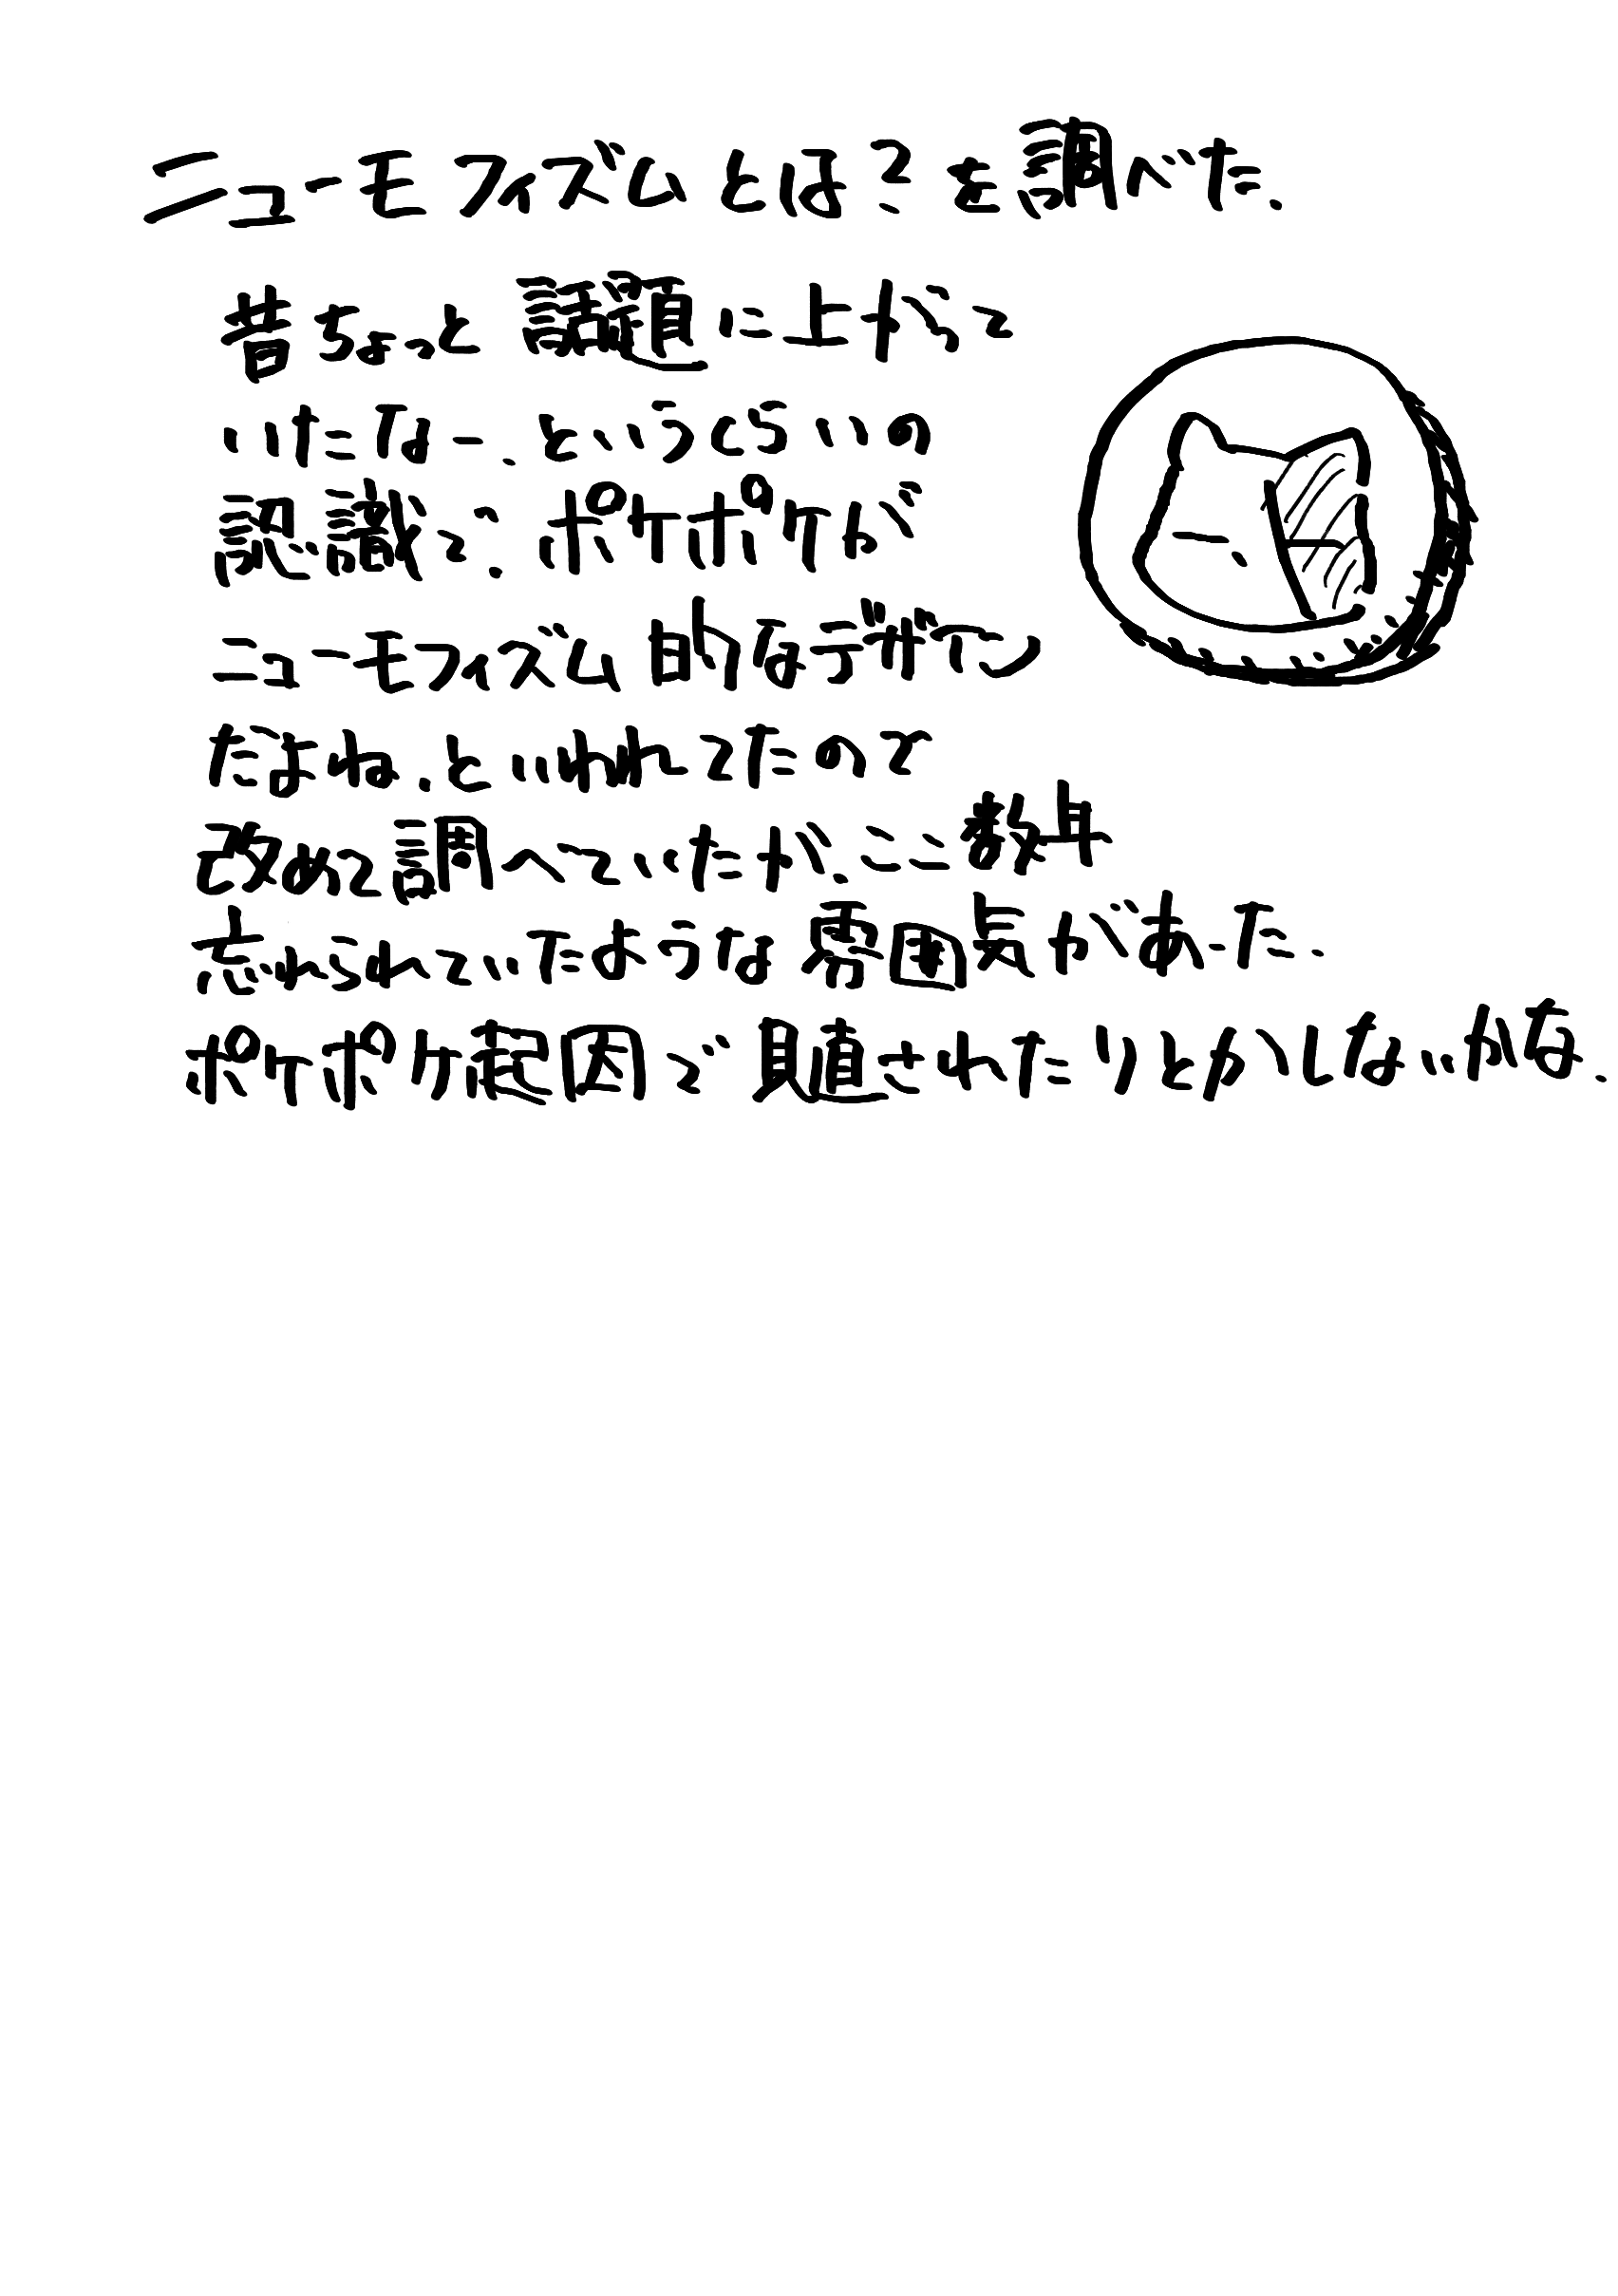 ニューモフィズムとは?を調べた、
昔ちょっと話題に上がって
いたなー、というぐらいの
認識で、ポケポケが
ニューモフィズム的なデザイン
だよね、といわれてたので
改めて調べていたが、ここ数年
忘れられていたような雰囲気があった、
ポケポケ起因で見直されたりとかしないかな、